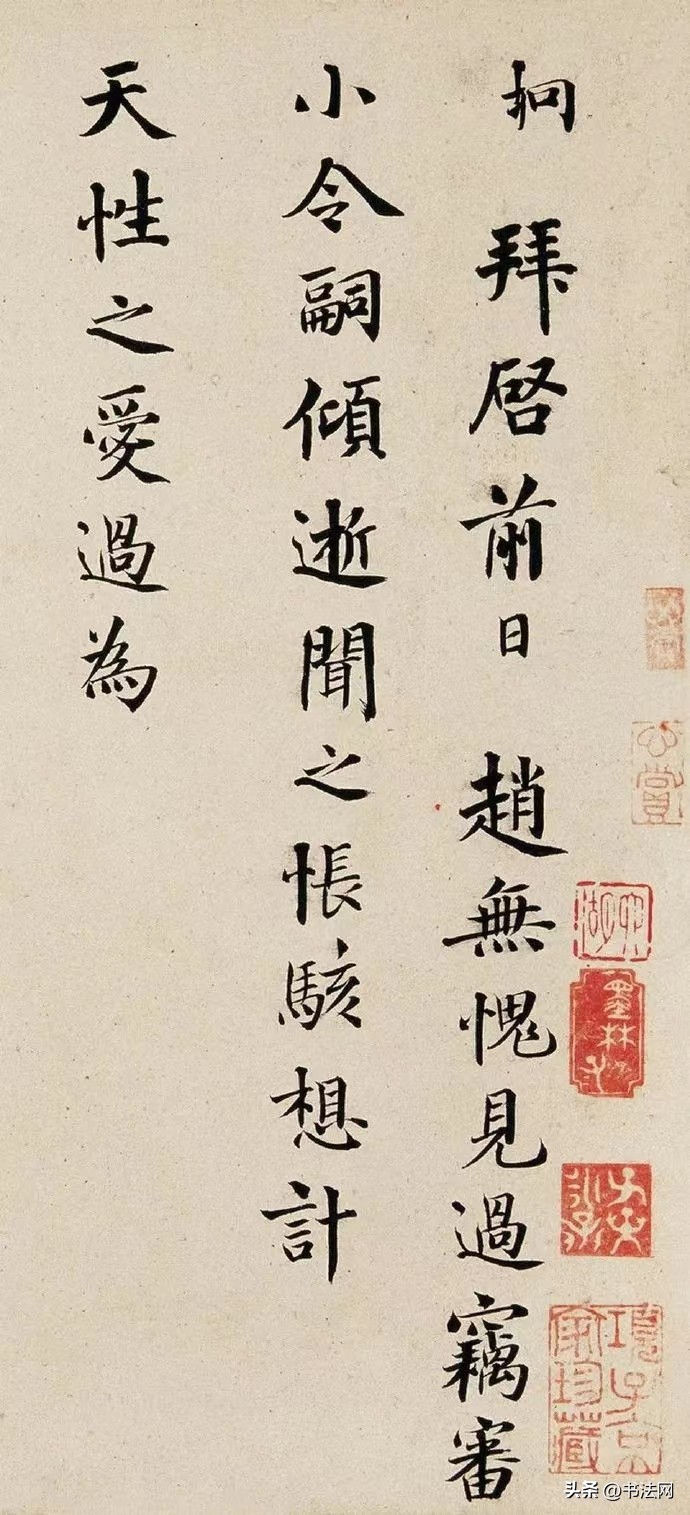 拜啓前日 趙無愧見過竊審
小令嗣傾逝聞之悵駭想計
天性之愛過為
項子京家珍藏
头条 @书法网